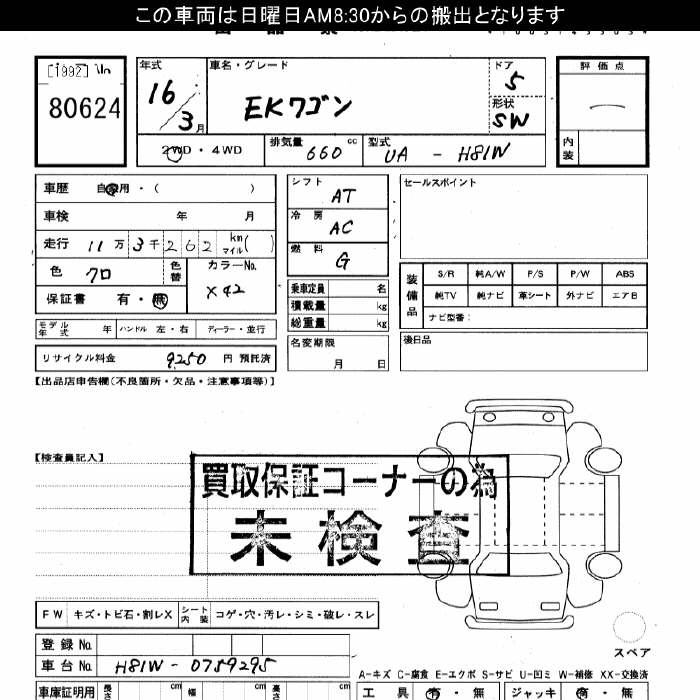 この車両は日曜日AM8:30からの搬出となります
[1992] 
80624
年式
16
3月
車名・グレード
EKワゴン
ドア
5
形状
SW
評価点
内装
2WD・4WD
排気量
660 cc
型式
UA - H81W
車歴 自家用・( )
車検 年 月
走行 11万3千262 km マイル( )
色 クロ 色替 カラーNo. X42
保証書 有・無
シフト AT
冷房 AC
燃料 G
乗車定員 名
積載量 kg
総重量 kg
名変期限
月 日
セールスポイント
装備品
S/R 純A/W P/S P/W ABS
純TV 純ナビ 革シート 外ナビ エアB
ナビ型番:
後日品
モデル年式 年 ハンドル 左・右 ディーラー・並行
リサイクル料金 9250 円 預託済
【出品店申告欄(不良箇所・欠品・注意事項等)】
【検査員記入】
買取保証コーナーの為
未検査
FW キズ・トビ石・割レX シート内装 コゲ・穴・汚レ・シミ・破レ・スレ
登録No.
車台No. H81W-0759295
スペア
A-キズ C-腐食 E-エクボ S-サビ U-凹ミ W-補修 XX-交換済
車庫証明用 長さ cm 幅 cm 高さ cm
工具 有・無 ジャッキ 有・無